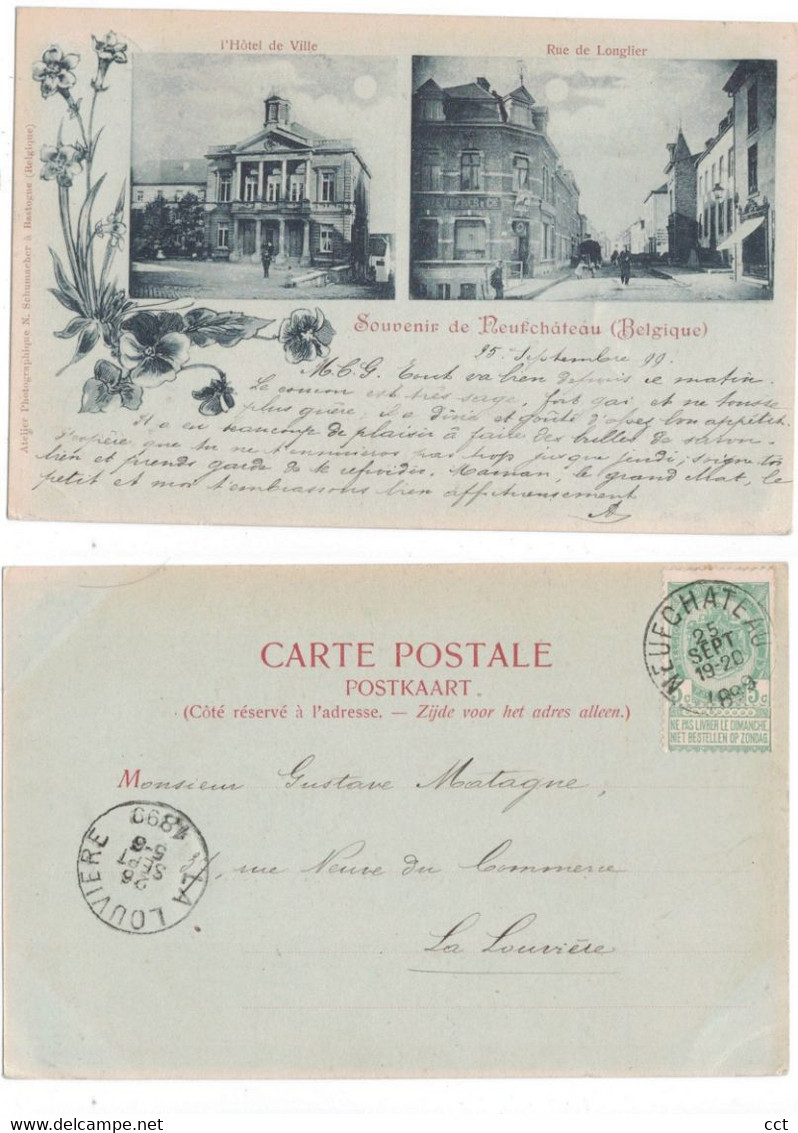 l'Hôtel de Ville
Rue de Longlier
Atelier Photographique N. Schumacher à Bastogne (Belgique)
Souvenir de Neufchâteau (Belgique)
25 Septembre 99.
M.C.G. Tout va bien depuis ce matin.
La est très sage, fort gai et ne tousse
plus guère; il a dîné et goûté d'assez bon appétit.
Il a eu beaucoup de plaisir à faire des bulles de savon.
J'espère que tu ne t'ennuieras pas trop jusque jeudi; soigne-toi
bien et prends garde de te refroidir. Maman, le grand Mat, le
petit et moi t'embrassons bien affectueusement
A
CARTE POSTALE
POSTKAART
(Côté réservé à l'adresse. — Zijde voor het adres alleen.)
NEUFCHATEAU
25
SEPT
19-20
1899
5c 5c
NE PAS LIVRER LE DIMANCHE
NIET BESTELLEN OP ZONDAG
Monsieur Gustave Matagne,
rue Neuve du Commerce
La Louvière
LA LOUVIERE
26
SEPT
5-6
1899
cct